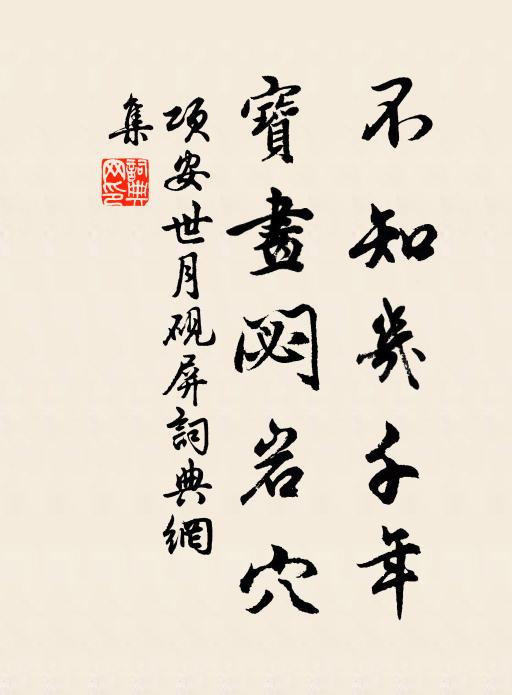 不知幾千年
寶畫閟岩穴
項安世月硯屏詞典網
集
詞典網印